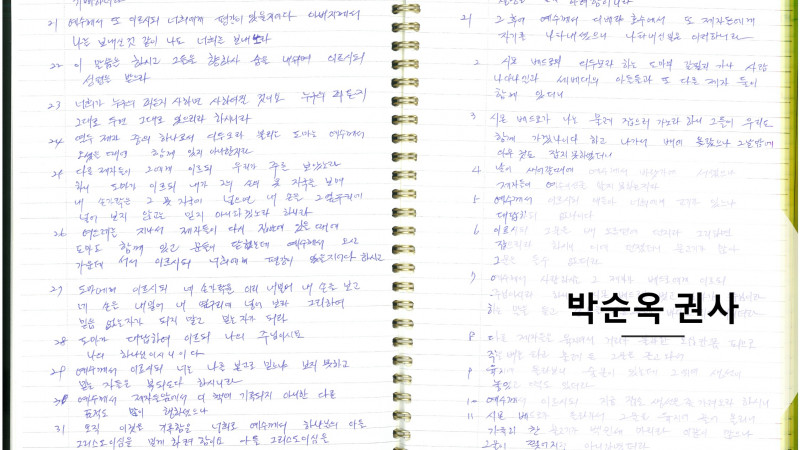 21 예수께서 또 이르시되 너희에게 평강이 있을지어다 아버지께서
나를 보내신 것 같이 나도 너희를 보내노라
22 이 말씀을 하시고 그들을 향하사 숨을 내쉬며 이르시되
성령을 받으라
23 너희가 누구의 죄든지 사하면 사하여질 것이요 누구의 죄든지
그대로 두면 그대로 있으리라 하시니라
24 열두 제자 중의 하나로서 디두모라 불리는 도마는 예수께서
오셨을 때에 함께 있지 아니한지라
25 다른 제자들이 그에게 이르되 우리가 주를 보았노라
하니 도마가 이르되 내가 그의 손의 못 자국을 보며
내 손가락을 그 못 자국에 넣으며 내 손을 그 옆구리에
넣어 보지 않고는 믿지 아니하겠노라 하니라
26 여드레를 지나서 제자들이 다시 집안에 있을 때에
도마도 함께 있고 문들이 닫혔는데 예수께서 오사
가운데 서서 이르시되 너희에게 평강이 있을지어다 하시고
27 도마에게 이르시되 네 손가락을 이리 내밀어 내 손을 보고
네 손을 내밀어 내 옆구리에 넣어 보라 그리하여
믿음 없는 자가 되지 말고 믿는 자가 되라
28 도마가 대답하여 이르되 나의 주님이시요
나의 하나님이시니이다
29 예수께서 이르시되 너는 나를 본고로 믿느냐 보지 못하고
믿는 자들은 복되도다 하시니라
30 예수께서 제자들 앞에서 이 책에 기록되지 아니한 다른
표적도 많이 행하셨으나
31 오직 이것을 기록함은 너희로 예수께서 하나님의 아들
그리스도이심을 믿게 하려 함이요
21 그 후에 예수께서 디베랴 호수에서 또 제자들에게
자기를 나타내셨으니 나타내신 일은 이러하니라
2 시몬 베드로와 디두모라 하는 도마와 갈릴리 가나 사람
나다나엘과 세베대의 아들들과 또 다른 제자 둘이
함께 있더니
3 시몬 베드로가 나는 물고기 잡으러 가노라 하니 그들이 우리도
함께 가겠나이다 하고 나가서 배에 올랐으나 그날 밤에
아무것도 잡지 못하였더니
4 날이 새어갈 때에 예수께서 바닷가에 서셨으나
제자들이 예수이신 줄 알지 못하는지라
5 예수께서 이르시되 너희에게 고기가 있느냐
대답하되 없나이다
6 이르시되 그물을 배 오른편에 던지라 그리하면
잡으리라 하시니 이에 던졌더니 물고기가 많아
그물을 들 수 없더라
7 예수께서 사랑하시는 그 제자가 베드로에게 이르되
박순옥 권사
8 다른 제자들은
9 육지에 올라보니 숯불이 있는데 그 위에 생선이
놓였고 떡도 있더라
10 예수께서 이르시되 지금 잡은 생선을 좀 가져오라 하시니
11 시몬 베드로가 올라가서 그물을 육지에 끌어 올리니
가득히 찬 물고기가